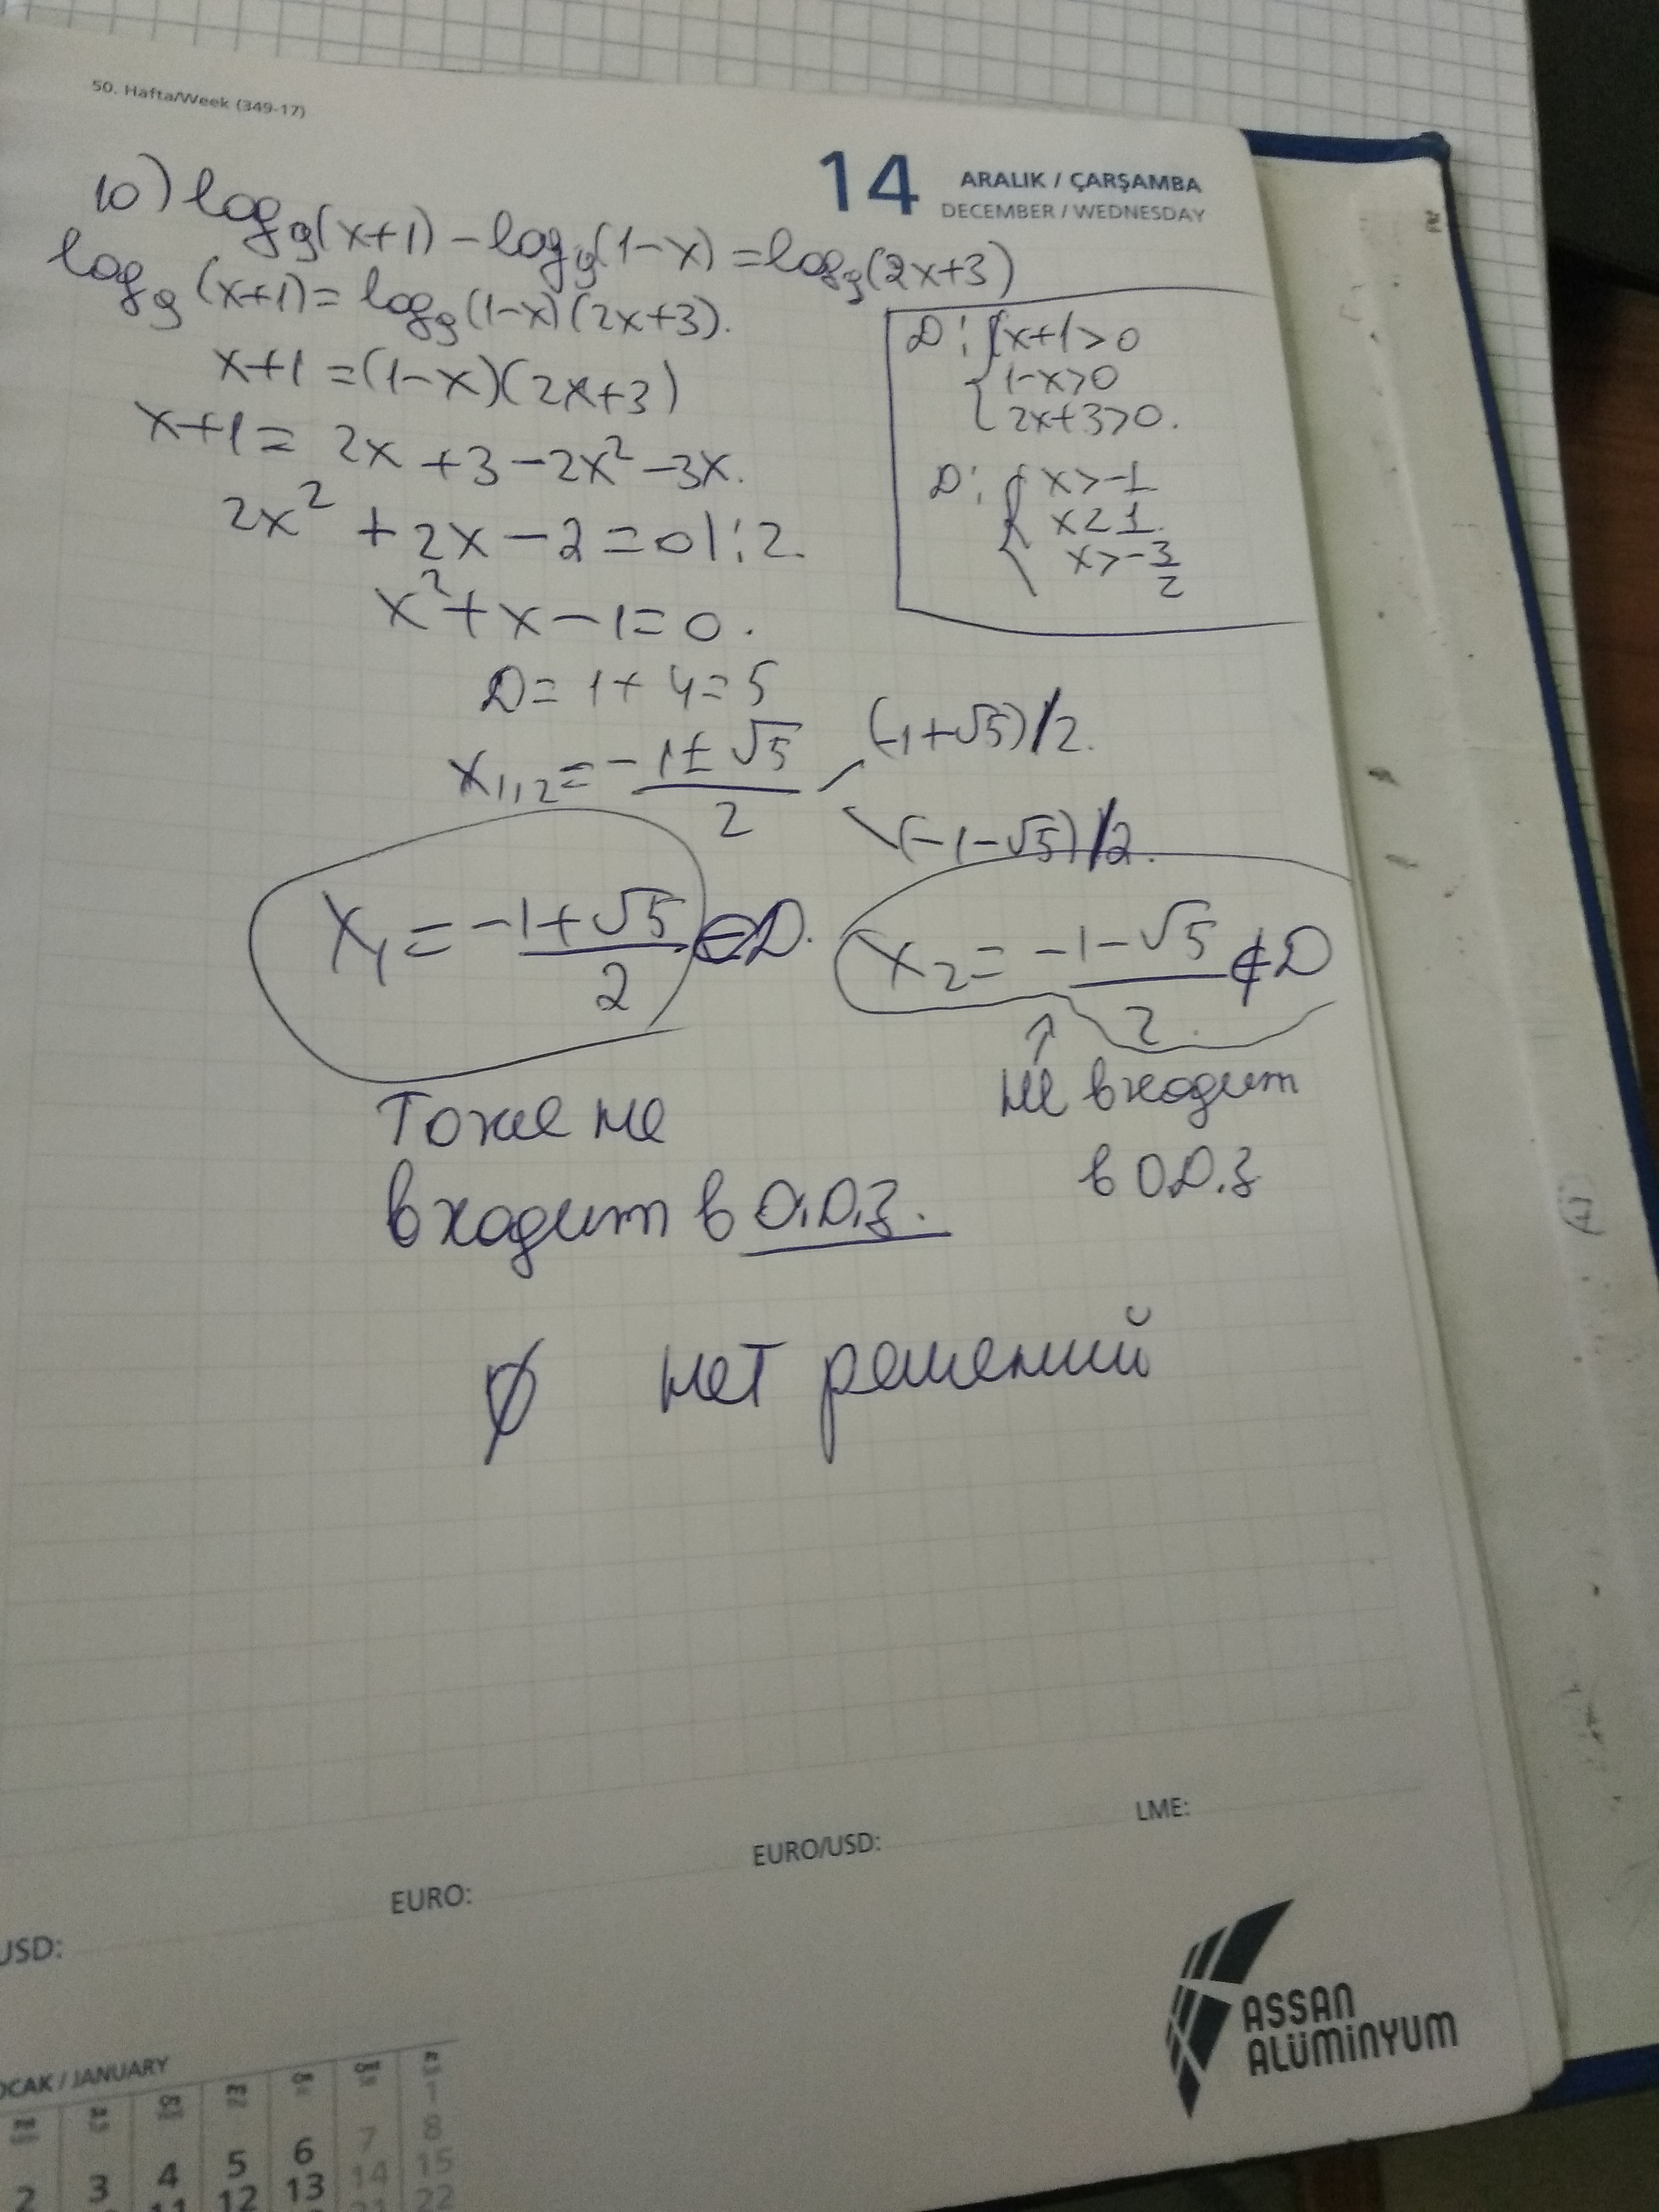 50. Hafta/Week (349-17)
14
ARALIK / ÇARŞAMBA
DECEMBER / WEDNESDAY
10) log₉(x+1) - log₉(1-x) = log₉(2x+3)
log₉(x+1) = log₉(1-x)(2x+3).
x+1 = (1-x)(2x+3)
x+1 = 2x + 3 - 2x² - 3x.
2x² + 2x - 2 = 0 | : 2.
x² + x - 1 = 0.
D = 1 + 4 = 5
x₁,₂ = -1 ± √5 / 2
(-1+√5)/2.
(-1-√5)/2.
D: { x+1>0
1-x>0
2x+3>0.
D: { x>-1
x<1.
x>-3/2
x₁ = -1+√5 / 2 ∈ D.
x₂ = -1-√5 / 2 ∉ D
↑
не входит
в О.D.З
Тоже не
входит в О.D.З.
∅ нет решений
LME:
EURO/USD:
EURO:
USD:
ASSAN
ALÜMİNYUM
OCAK / JANUARY
1
6 7 8
2 3 4 5
12 13 14 15
22